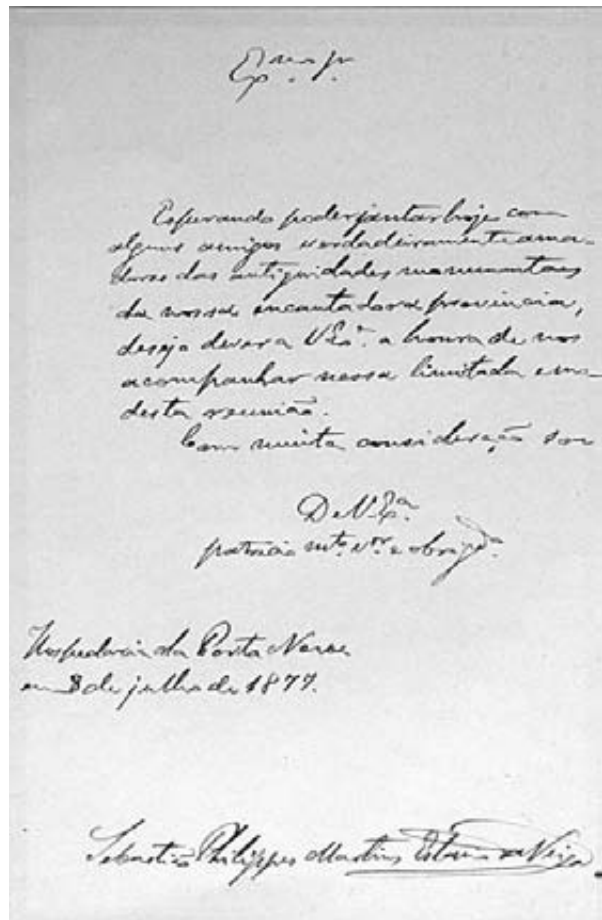 Ex.mo Sr.
Esperando poder jantar hoje com
alguns amigos verdadeiramente ama-
dores das antiguidades monumentaes
da nossa encantadora provincia,
desejo dever a V. Ex.ª a honra de nos
acompanhar nessa limitada e mo-
desta reunião.
Com muita consideração sou
De V. Ex.ª
patricio m.to v.or e obrig.do
Hospedaria da Porta Nova
em 8 de julho de 1877.
Sebastião Philippes Martins Estacio da Veiga